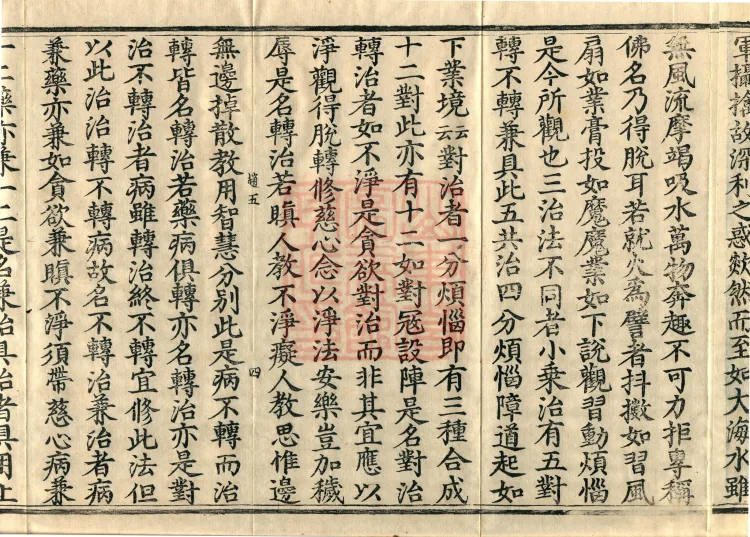 軍攝捨故深利之惑欻然而至如大海水雖
無風流摩竭吸水萬物奔趣不可力拒專稱
佛名乃得脫耳若就火為譬者抖擻如習風
扇如業膏投如魔魔業如下說觀習動煩惱
是今所觀也三治法不同者小乗治有五對
轉不轉兼具此五共治四分煩惱障道起如
下業境云云對治者一分煩惱即有三種合成
十二對此亦有十二如對冦設陣是名對治
轉治者如不淨是貪欲對治而非其宜應以
淨觀得脫轉修慈心念以淨法安樂豈加穢
辱是名轉治若瞋人教不淨癡人教思惟邊
五 四
無邊掉散教用智慧分別此是病不轉而治
轉皆名轉治若藥病俱轉亦名轉治亦是對
治不轉治者病雖轉治終不轉宜修此法但
以此治治轉不轉病故名不轉治兼治者病
兼藥亦兼如貪欲兼瞋不淨須帶慈心病兼
一二藥亦兼一二是名兼治具治者具用上